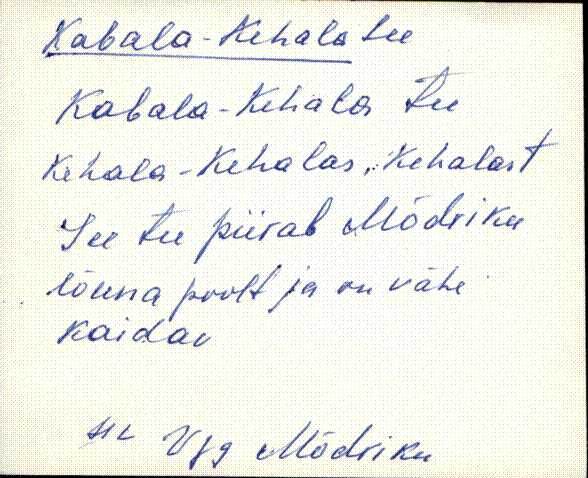 Kabala-Kehala tee
Kabala-Kehala tee
Kehala-Kehalas, Kehalast
See tee piirab Mõdriku
lõuna poolt ja on vähe
kaidav
Vjg Mõdriku